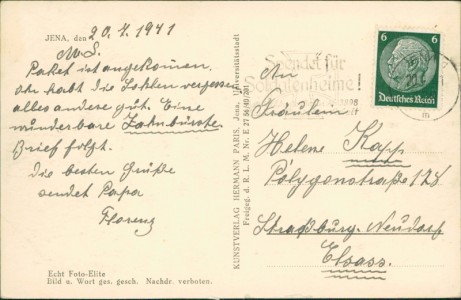 JENA, den 20.7.1941
M. L.
Paket ist angekommen,
ihr habt die Sohlen vergessen
alles andere gut. Eine
wunderbare Zahnbürste.
Brief folgt.
die besten Grüße
sendet Papa
Florenz
Echt Foto-Elite
Bild u. Wort ges. gesch. Nachdr. verboten.
KUNSTVERLAG HERMANN PARIS, Jena, Universitätsstadt
Freigeg. d. R. L. M. Nr. E
Spendet für
!
6 6
Deutsches Reich
m
An
Fräulein
Helene Kapp
Polygonstraße 178
Straßburg-Neudorf
Elsass.